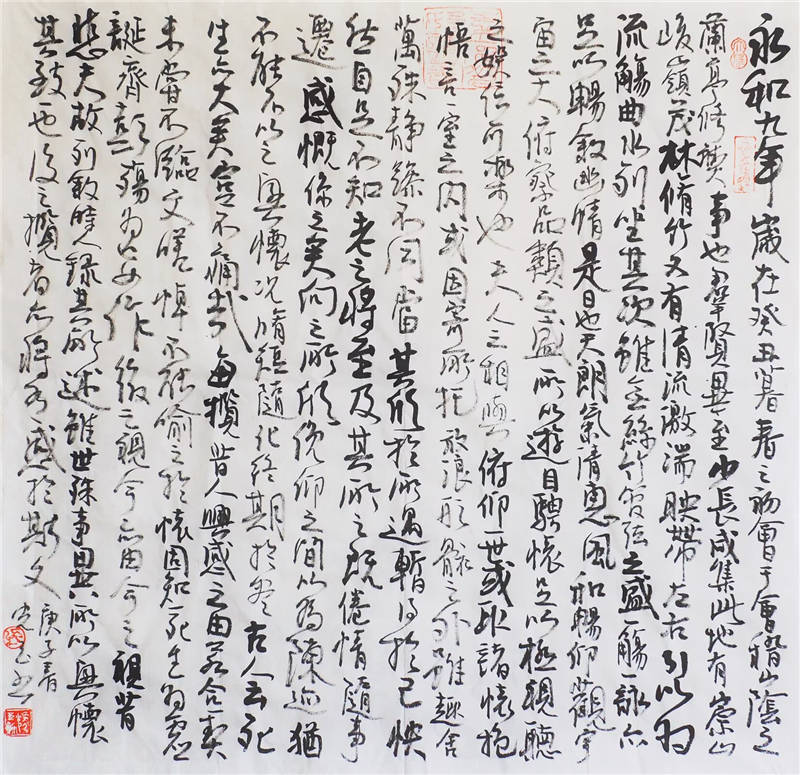 永和九年歲在癸丑暮春之初會于會稽山陰之
蘭亭修禊事也羣賢畢至少長咸集此地有崇山
峻嶺茂林脩竹又有清流激湍映帶左右引以為
流觴曲水列坐其次雖無絲竹管弦之盛一觴一詠亦
足以暢敘幽情是日也天朗氣清惠風和暢仰觀宇
宙之大俯察品類之盛所以遊目騁懷足以極視聽
之娛信可樂也夫人之相與俯仰一世或取諸懷抱
悟言一室之内或因寄所托放浪形骸之外雖趣舍
萬殊靜躁不同當其欣於所遇暫得於己快
然自足不知老之將至及其所之既倦情隨事
遷感慨係之矣向之所欣俛仰之間以為陳迹猶
不能不以之興懷況脩短隨化終期於盡古人云死
生亦大矣豈不痛哉每攬昔人興感之由若合契
未嘗不臨文嗟悼不能喻之於懷固知死生為虛
誕齊彭殤為妄作後之視今亦由今之視昔
悲夫故列敘時人錄其所述雖世殊事異所以興懷
其致也後之攬者亦將有感於斯文
庚子春